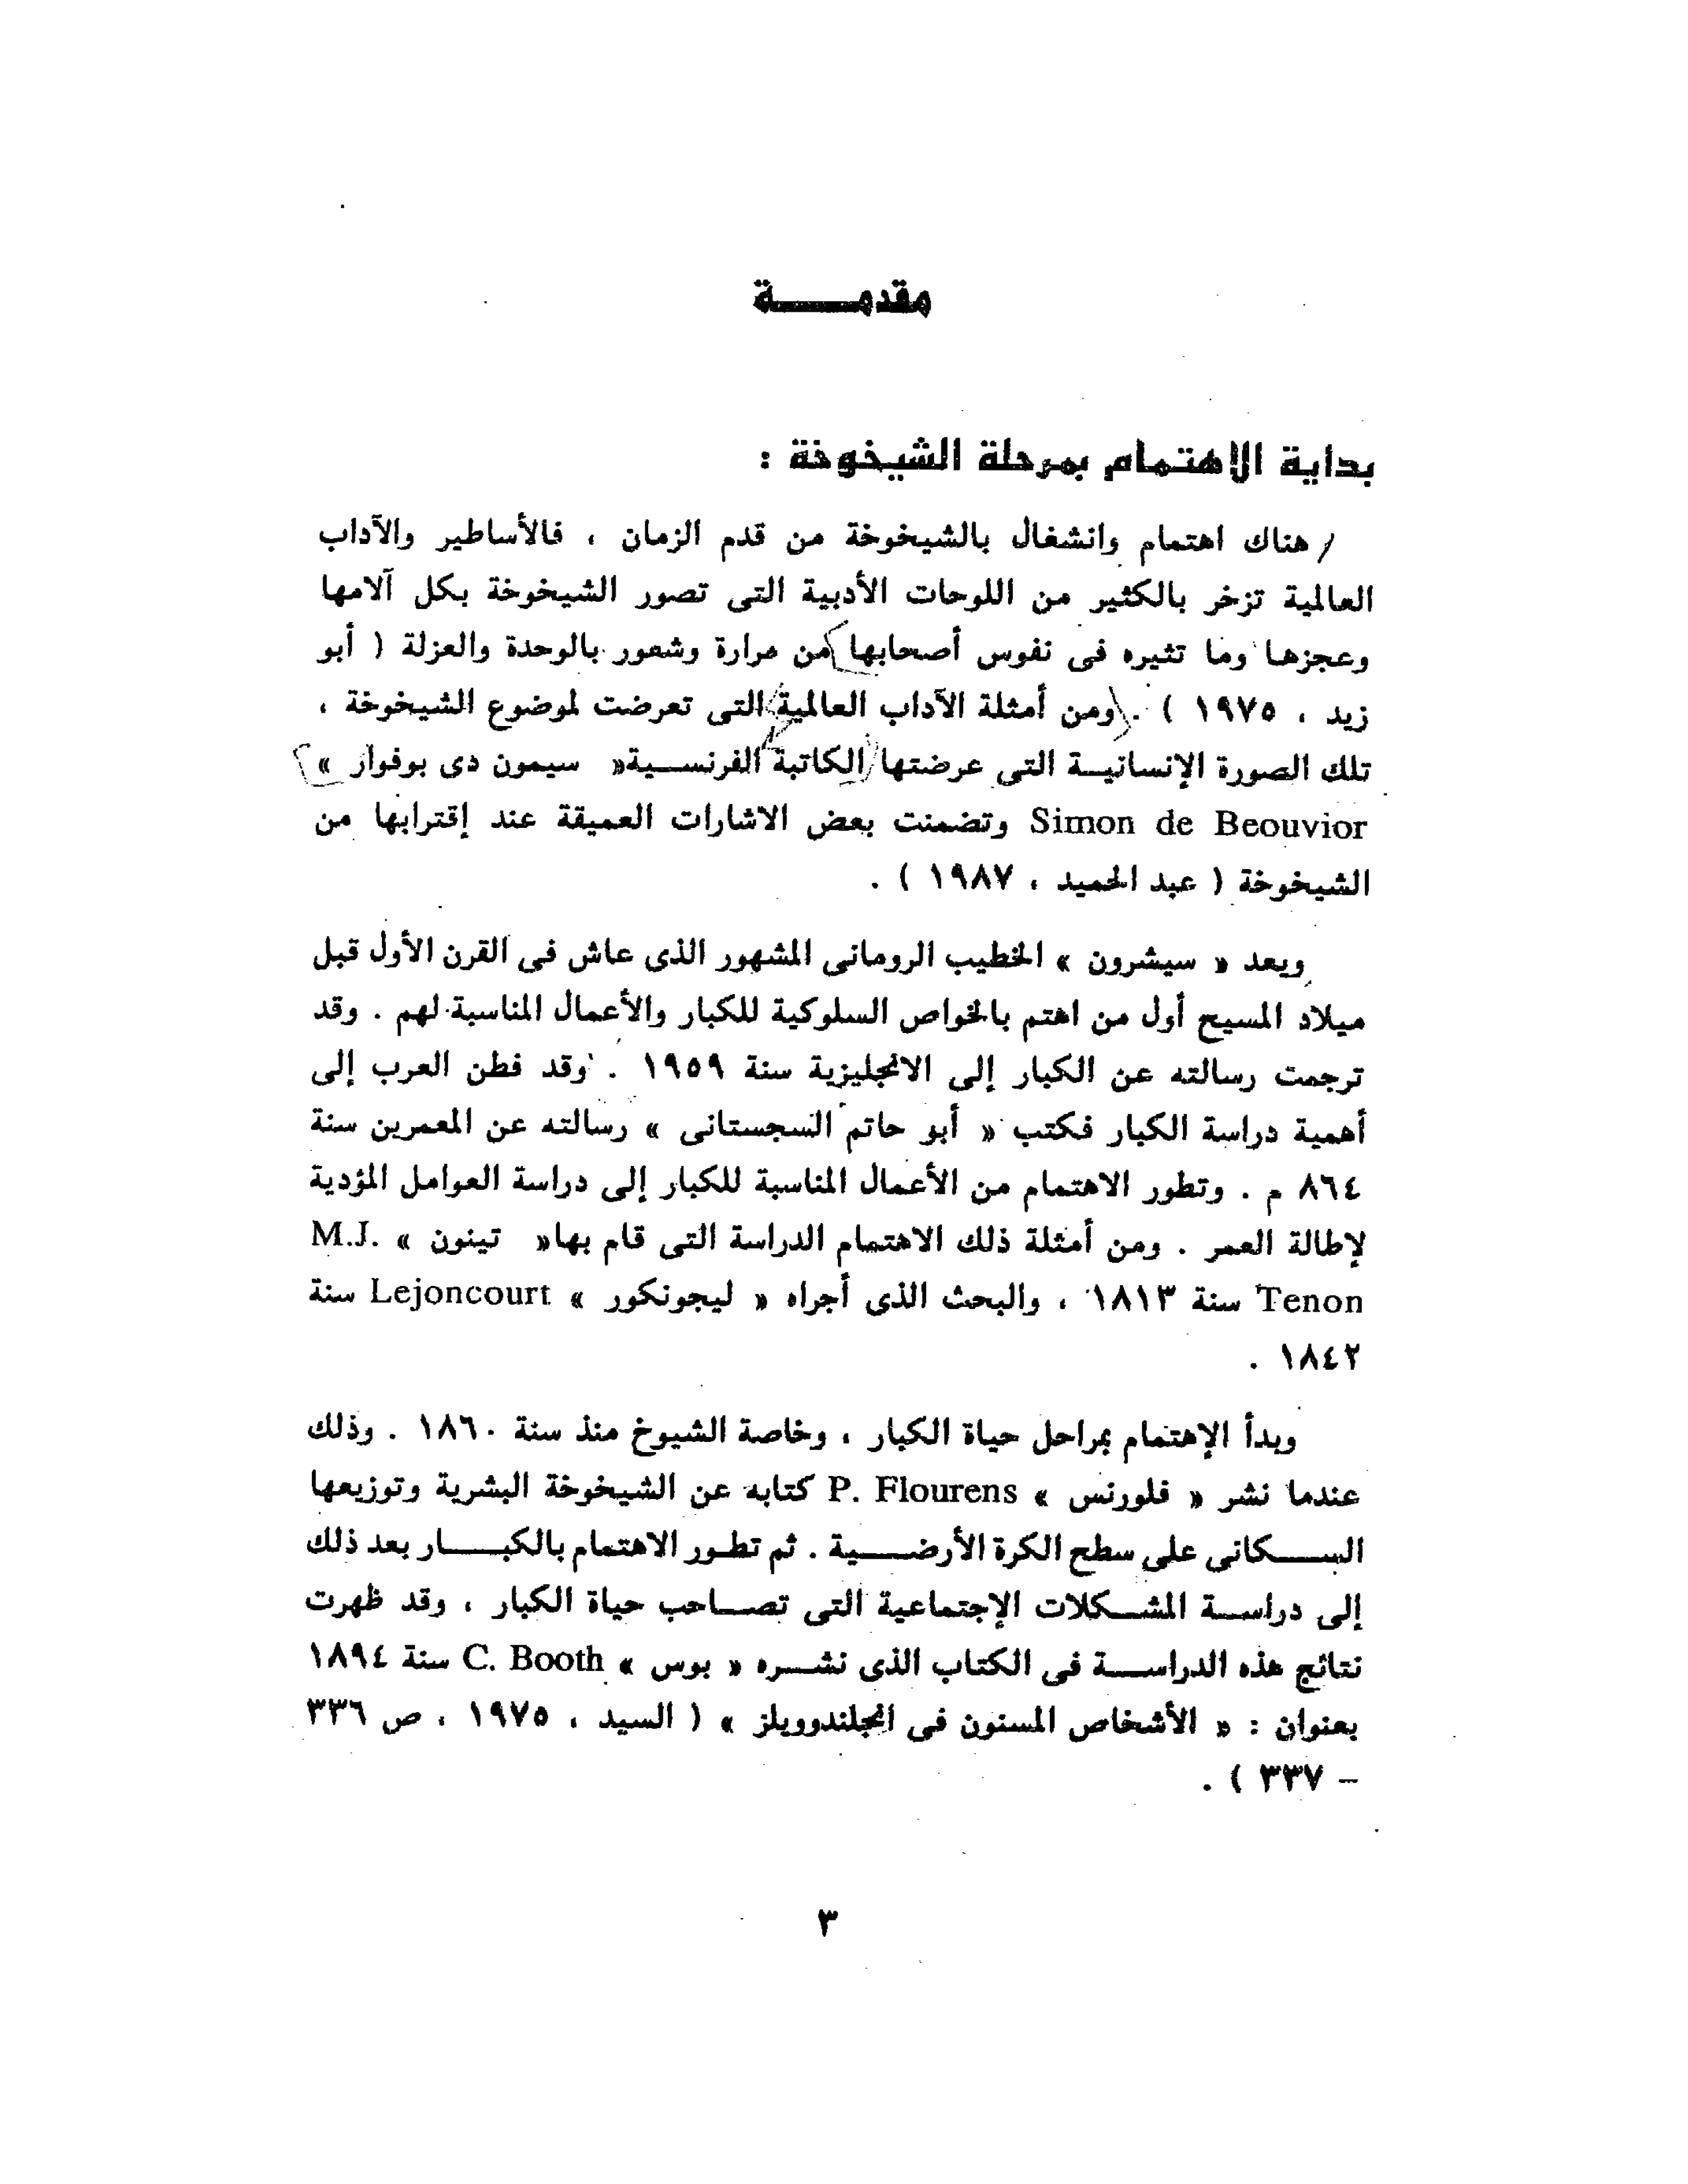 مقدمـــــة
بداية الاهتمام بمرحلة الشيخوخة :
هناك اهتمام وانشغال بالشيخوخة من قدم الزمان ، فالأساطير والآداب
العالمية تزخر بالكثير من اللوحات الأدبية التى تصور الشيخوخة بكل آلامها
وعجزها وما تثيره فى نفوس أصحابها من مرارة وشعور بالوحدة والعزلة ( أبو
زيد ، ١٩٧٥ ) . ومن أمثلة الآداب العالمية التى تعرضت لموضوع الشيخوخة ،
تلك الصورة الإنسانيـة التى عرضتها الكاتبة الفرنســية« سيمون دى بوفوار »
Simon de Beouvior وتضمنت بعض الاشارات العميقة عند إقترابها من
الشيخوخة ( عبد الحميد ، ١٩٨٧ ) .
ويعد « سيشرون » الخطيب الرومانى المشهور الذى عاش فى القرن الأول قبل
ميلاد المسيح أول من اهتم بالخواص السلوكية للكبار والأعمال المناسبة لهم . وقد
ترجمت رسالته عن الكبار إلى الانجليزية سنة ١٩٥٩ . وقد فطن العرب إلى
أهمية دراسة الكبار فكتب « أبو حاتم السجستانى » رسالته عن المعمرين سنة
٨٦٤ م . وتطور الاهتمام من الأعمال المناسبة للكبار إلى دراسة العوامل المؤدية
لإطالة العمر . ومن أمثلة ذلك الاهتمام الدراسة التى قام بها« تينون » M.J.
Tenon سنة ١٨١٣ ، والبحث الذى أجراه « ليجونكور » Lejoncourt سنة
١٨٤٢ .
وبدأ الإهتمام بمراحل حياة الكبار ، وخاصة الشيوخ منذ سنة ١٨٦٠ . وذلك
عندما نشر « فلورنس » P. Flourens كتابه عن الشيخوخة البشرية وتوزيعها
الســـكانى على سطح الكرة الأرضـــية . ثم تطـور الاهتمام بالكبـــار بعد ذلك
إلى دراســة المشــكلات الإجتماعية التى تصــاحب حياة الكبار ، وقد ظهرت
نتائج هذه الدراســـة فى الكتاب الذى نشـــره « بوس » C. Booth سنة ١٨٩٤
بعنوان : « الأشخاص المسنون فى انجلندوويلز » ( السيد ، ١٩٧٥ ، ص ٣٣٦
– ٣٣٧ ) .
٣